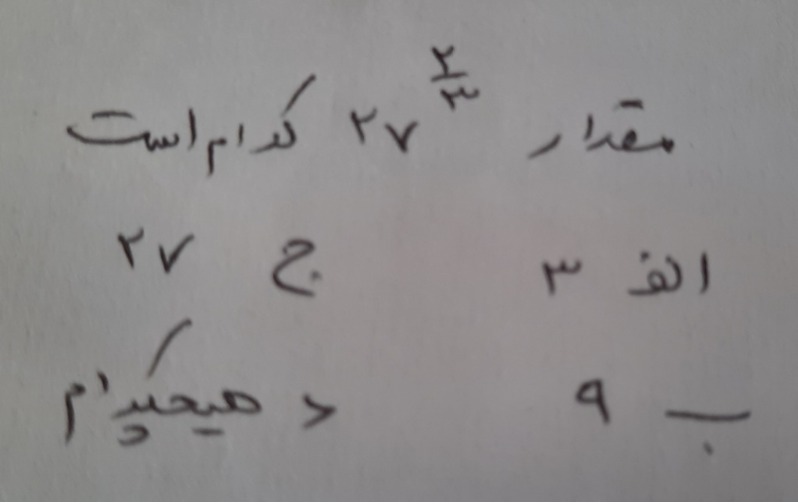 مقدار ۲۷^(۲/۳) کدام است
الف ۳ ج ۲۷
ب ۹ د هیچکدام